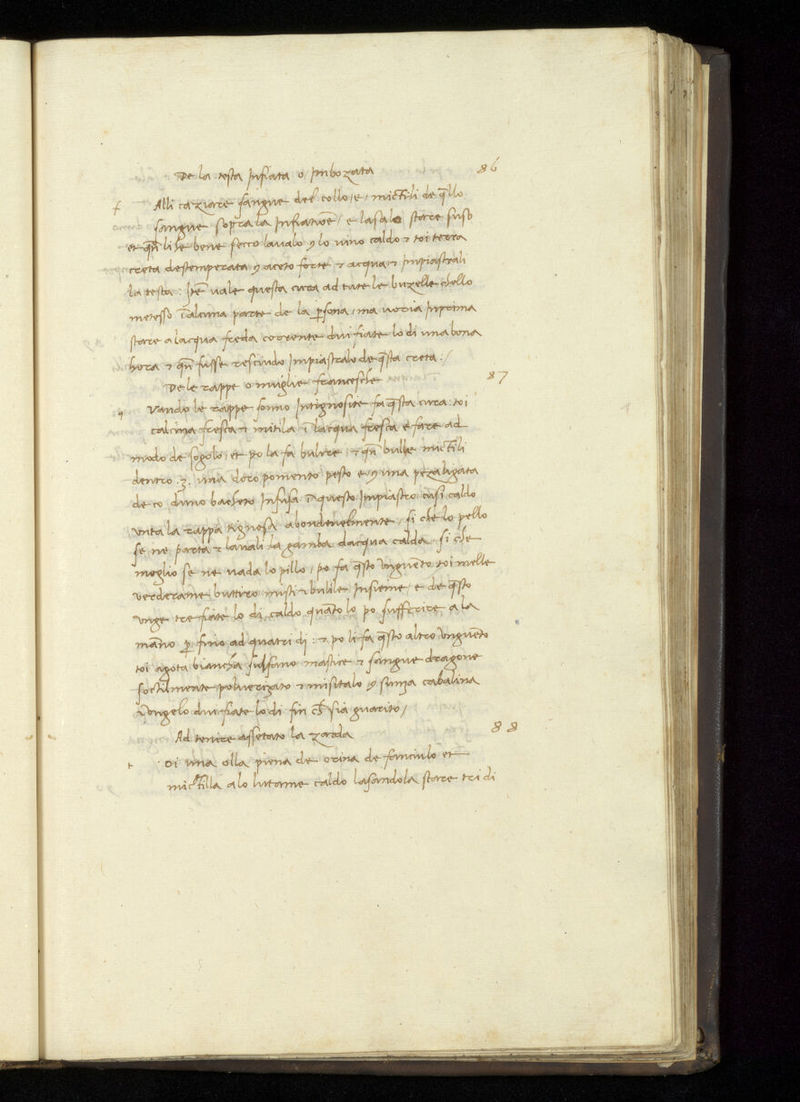 De la testa Infiata o Inbozata 86
f Alli cazoare sangue del collo / e / mictili de q̄llo
sangue sopra la Infiatioē / e lasalo stare suso
et qñ li he bene secco lavalo ꝯ lo vino caldo ⁊ toi terra
creta destemperata ꝯ aceto forte ⁊ acqua ⁊ Impiastrali
la testa : Itē vale questa cura ad tute le buzelle chello
metesso ī alcuna parte de la ꝑsona / ma voria Inprima
stare a lacqua freda corrente dui fiate lo di una bona
hora ⁊ qñ fusse resciudo Impiastralo de q̄sta creta : /
De le rappe o muglie francesche 87
q Vando le rappe sonno Intignosite fa q̄sta cura : toi
calcina fresca ⁊ mitila ī lacqua fresca e fare ad
modo de sogolo / et po la fa bulire / ⁊ qñ bulle mictili
dentro ʒ. una doro pomento pesto e ꝯ una peza ligata
de co duno bacheto Infusa ī questo Impiastro cusi caldo
unta la rappa tignosa abondevelmente / si che lo pello
se ne parta ⁊ lavali la gamba dacqua calda si che
meglio se ne vada lo pillo / po fa q̄sto unguēto toi melle
verderame buttiro misti ⁊ bulile Insieme / e de q̄sto
unge tre fiate lo di caldo quāto lo po sufferire a la
māno ꝑ fino ad quatri di : ⁊ po li fa q̄sto altro unguēto
toi agota biancha sulfano mastice ⁊ sangue dragone
soctilmente polverizato ⁊ misitalo ꝯ sunza cabalina
⁊ ongelo dui fiate lo di fin ch̄ sia guarito /
Ad tenire assetato la zarda 88
t oi una olla piena de orina de fanciulo et
mictilla a lo lutame caldo lasandola stare tri di